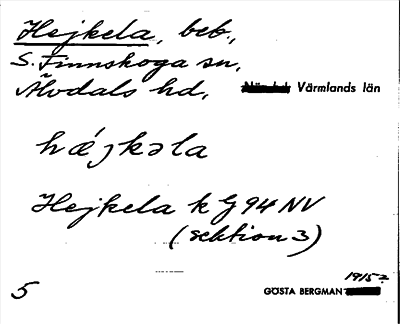 Hejkela, beb.,
S. Finnskoga sn,
Älvdals hd, Värmlands län
hǽjkəla
Hejkela k G 94 NV
(sektion 3)
1915?
5 GÖSTA BERGMAN